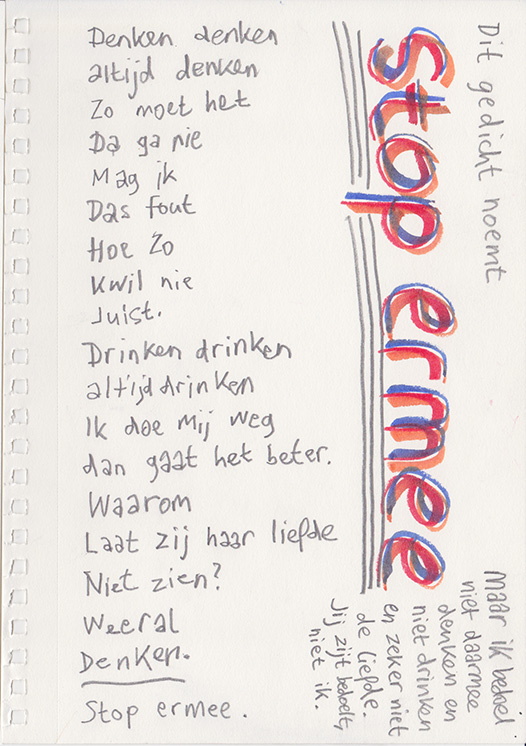 Dit gedicht noemt
Stop ermee
Denken denken
altijd denken
Zo moet het
Da ga nie
Mag ik
Das fout
Hoe Zo
Kwil nie
Juist.
Drinken drinken
altijd drinken
Ik doe Mij weg
dan gaat het beter.
Waarom
Laat zij haar liefde
Niet zien?
Weeral
Denken.
Stop ermee.
Maar ik bedoel
niet daarmee
denken en
niet drinken
en zeker niet
de liefde.
Jij zijt bedoelt,
niet ik.